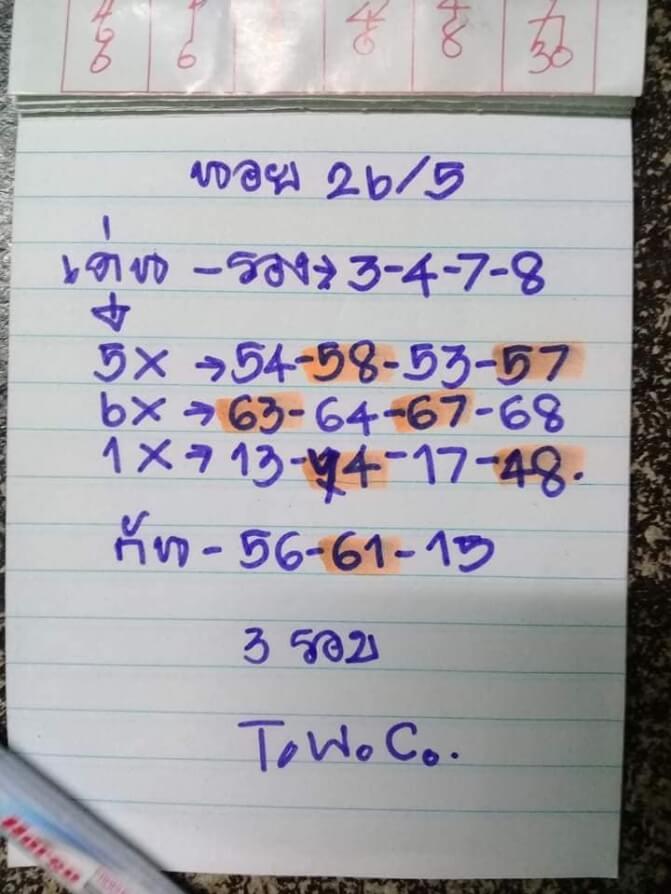 4 1 4 4 7
6 6 8
6 6 30
ฮอย 26/5
เด่น - รอง → 3-4-7-8
5X → 54-58-53-57
6X → 63-64-67-68
1X → 13-14-17-48.
กัน - 56-61-15
3 รอบ
T.W.C..